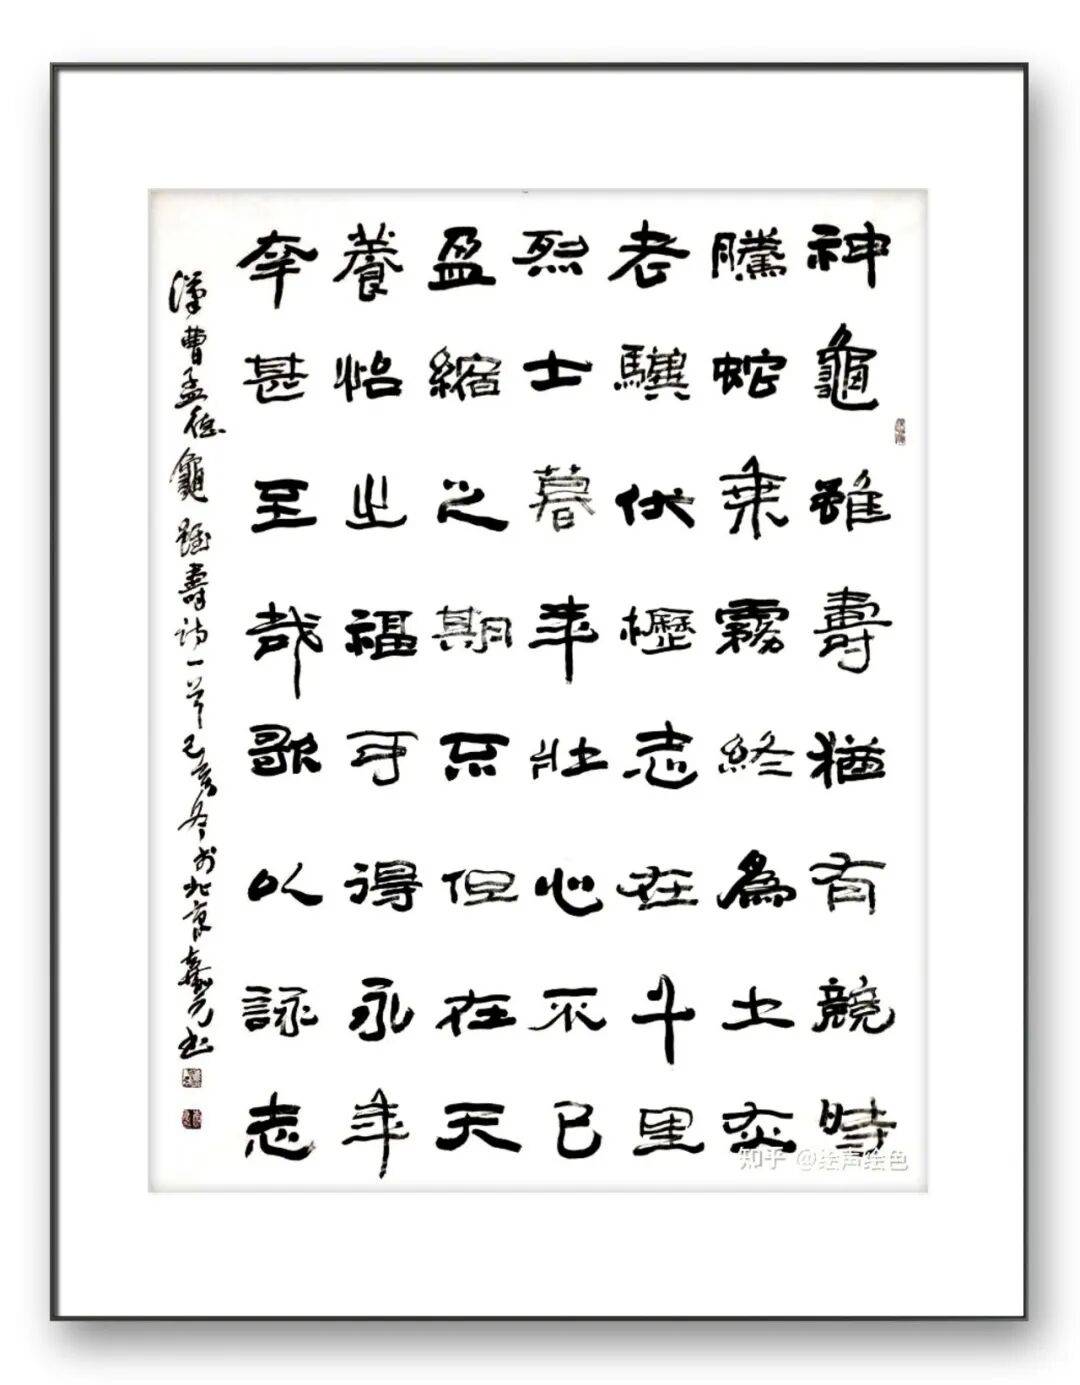 神龜雖壽猶有競時
騰蛇乘霧終為土灰
老驥伏櫪志在千里
烈士暮年壯心不已
盈縮之期不但在天
養怡之福可得永年
幸甚至哉歌以詠志
漢曹孟德龜雖壽詩一首己亥冬於北京元书
知乎 @绘声绘色